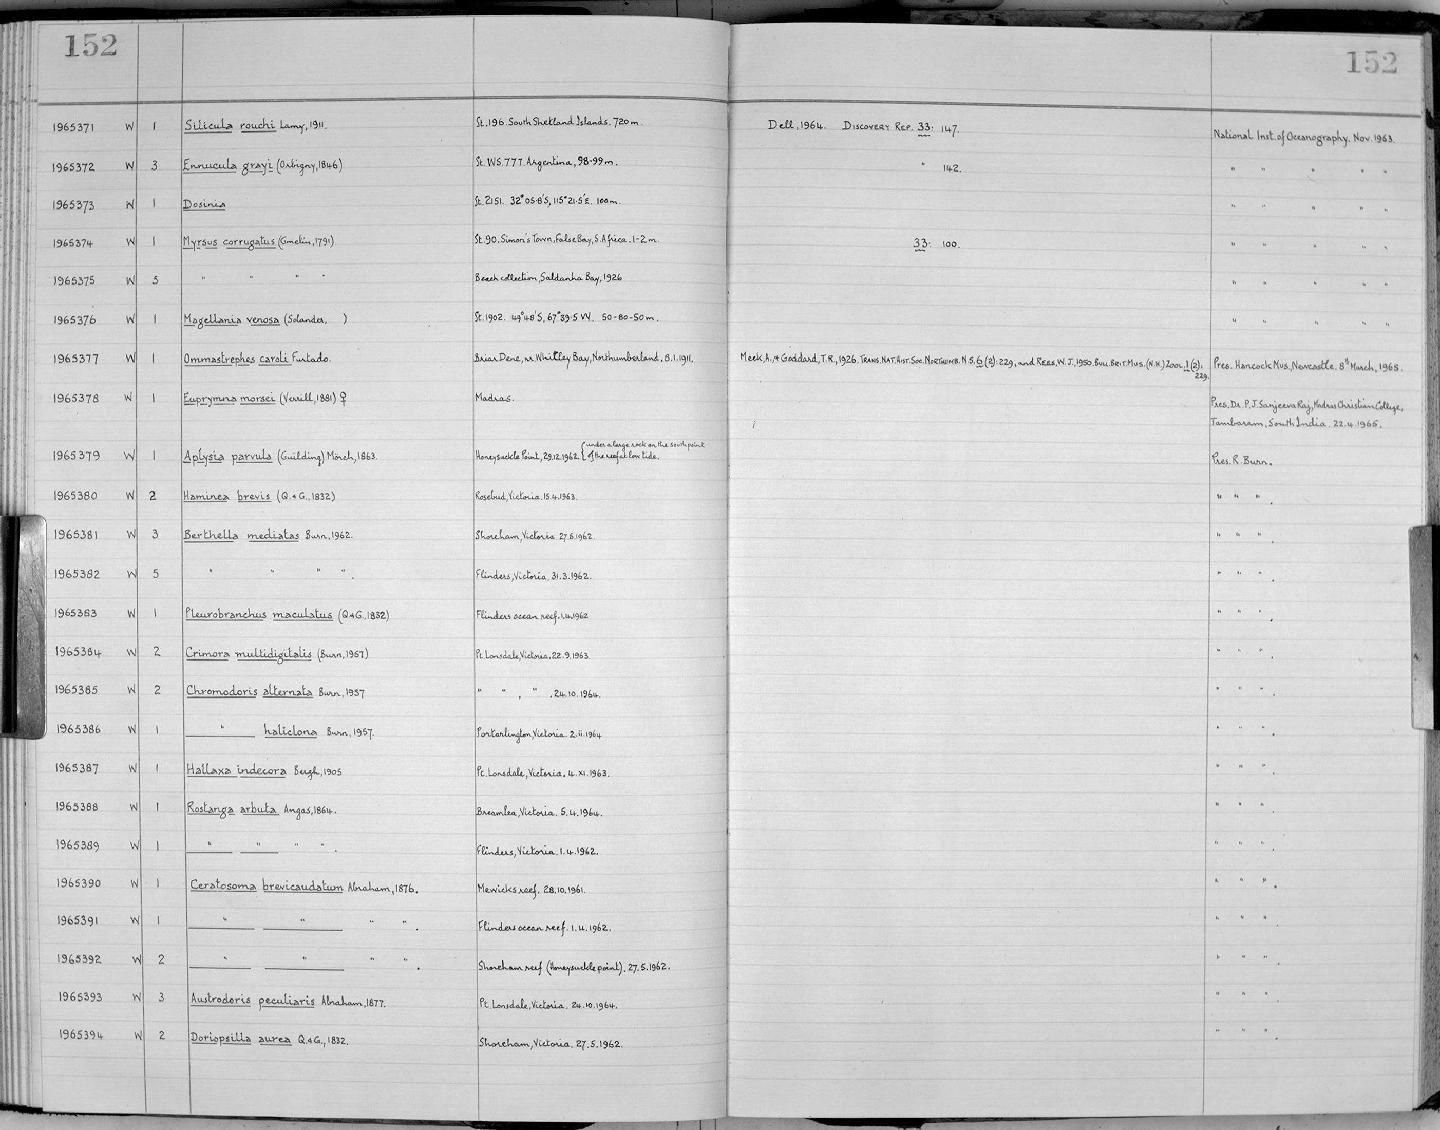 152
152
1965371 W 1 Silicula rouchi Lamy, 1911. St. 196. South Shetland Islands. 720 m. Dell, 1964. DISCOVERY REP. 33: 147. National Inst. of Oceanography. Nov. 1963.
1965372 W 3 Ennucula grayi (Orbigny, 1846) St. WS. 777. Argentina, 98-99 m. " 142. " " " " "
1965373 W 1 Dosinia St. 2151. 32° 05.8'S, 115° 21.5'E. 100 m. " " " " "
1965374 W 1 Myrsus corrugatus (Gmelin, 1791) St. 90. Simon's Town, False Bay, S. Africa. 1-2 m. 33: 100. " " " " "
1965375 W 5 " " " " Beach collection, Saldanha Bay, 1926 " " " " "
1965376 W 1 Magellania venosa (Solander, ) St. 1902. 49°48'S, 67°39.5 W. 50-80-50 m. " " " " "
1965377 W 1 Ommastrephes caroli Furtado. Briar Dene, nr Whitley Bay, Northumberland. 8.1.1911. Meek, A., & Goddard, T.R., 1926. TRANS. NAT. HIST. SOC. NORTHUMB. N.S. 6 (2): 229, and REES, W. J., 1950. BULL. BRIT. MUS. (N.H.) ZOOL. 1 (2): Pres. Hancock Mus., Newcastle. 8th March, 1965.
229.
1965378 W 1 Euprymna morsei (Verrill, 1881) ♀ Madras. Pres. Dr. P. J. Sanjeeva Raj, Madras Christian College,
Tambaram, South India. 22.4.1965.
under a large rock on the south point
1965379 W 1 Aplysia parvula (Guilding) Mörch, 1863. Honeysuckle Point, 29.12.1962. { of the reef at low tide. Pres. R. Burn.
1965380 W 2 Haminea brevis (Q. & G., 1832) Rosebud, Victoria. 15.4.1963. " " " .
1965381 W 3 Berthella mediatas Burn, 1962. Shoreham, Victoria. 27.5.1962. " " " .
1965382 W 5 " " " " . Flinders, Victoria. 31.3.1962. " " " .
1965383 W 1 Pleurobranchus maculatus (Q. & G., 1832) Flinders ocean reef. 1.4.1962 " " " .
1965384 W 2 Crimora multidigitalis (Burn, 1957) Pt. Lonsdale, Victoria. 22.9.1963. " " " .
1965385 W 2 Chromodoris alternata Burn, 1957 " " , " . 24.10.1964. " " " .
1965386 W 1 " haliclona Burn, 1957. Portarlington, Victoria. 2.ii.1964 " " " .
1965387 W 1 Hallaxa indecora Bergh, 1905 Pt. Lonsdale, Victoria. 4.xi.1963. " " " .
1965388 W 1 Rostanga arbuta Angas, 1864. Breamlea, Victoria. 5.4.1964. " " " .
1965389 W 1 " " " " . Flinders, Victoria. 1.4.1962. " " " .
1965390 W 1 Ceratosoma brevicaudatum Abraham, 1876. reef. 28.10.1961. " " " .
1965391 W 1 " " " " . Flinders ocean reef. 1.4.1962. " " " .
1965392 W 2 " " " " . Shoreham reef (Honeysuckle point). 27.5.1962. " " " .
1965393 W 3 Austrodoris peculiaris Abraham, 1877. Pt. Lonsdale, Victoria. 24.10.1964. " " " .
1965394 W 2 Doriopsilla aurea Q. & G., 1832. Shoreham, Victoria. 27.5.1962. " " " .